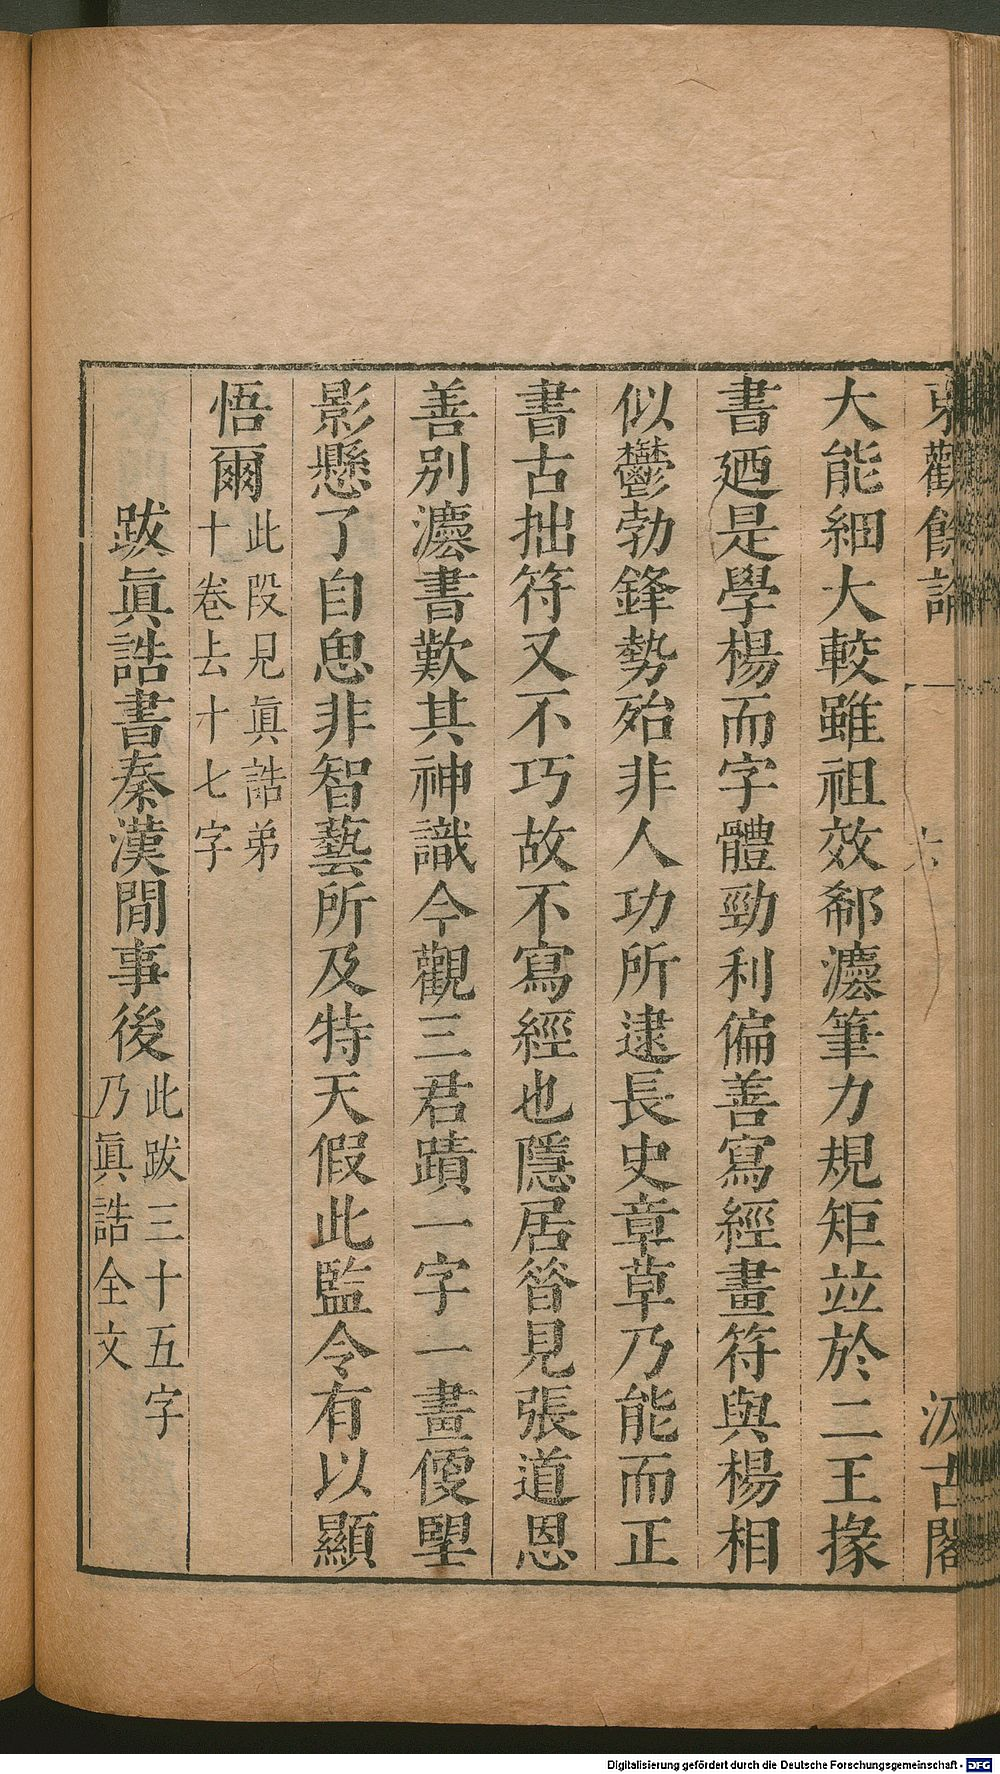 東觀餘論
六
汲古閣
大能細大較雖祖效郗灋筆力規矩竝於二王掾
書廼是學楊而字體勁利偏善寫經畫符與楊相
似鬱勃鋒勢殆非人功所逮長史章草乃能而正
書古拙符又不巧故不寫經也隱居昝見張道恩
善別灋書歎其神識今觀三君蹟一字一畫便朢
影懸了自思非智藝所及特天假此監令有以顯
悟爾此段見眞誥弟
十卷去十七字
跋眞誥書秦漢閒事後此跋三十五字
乃眞誥全文
Digitalisierung gefördert durch die Deutsche Forschungsgemeinschaft - DFG